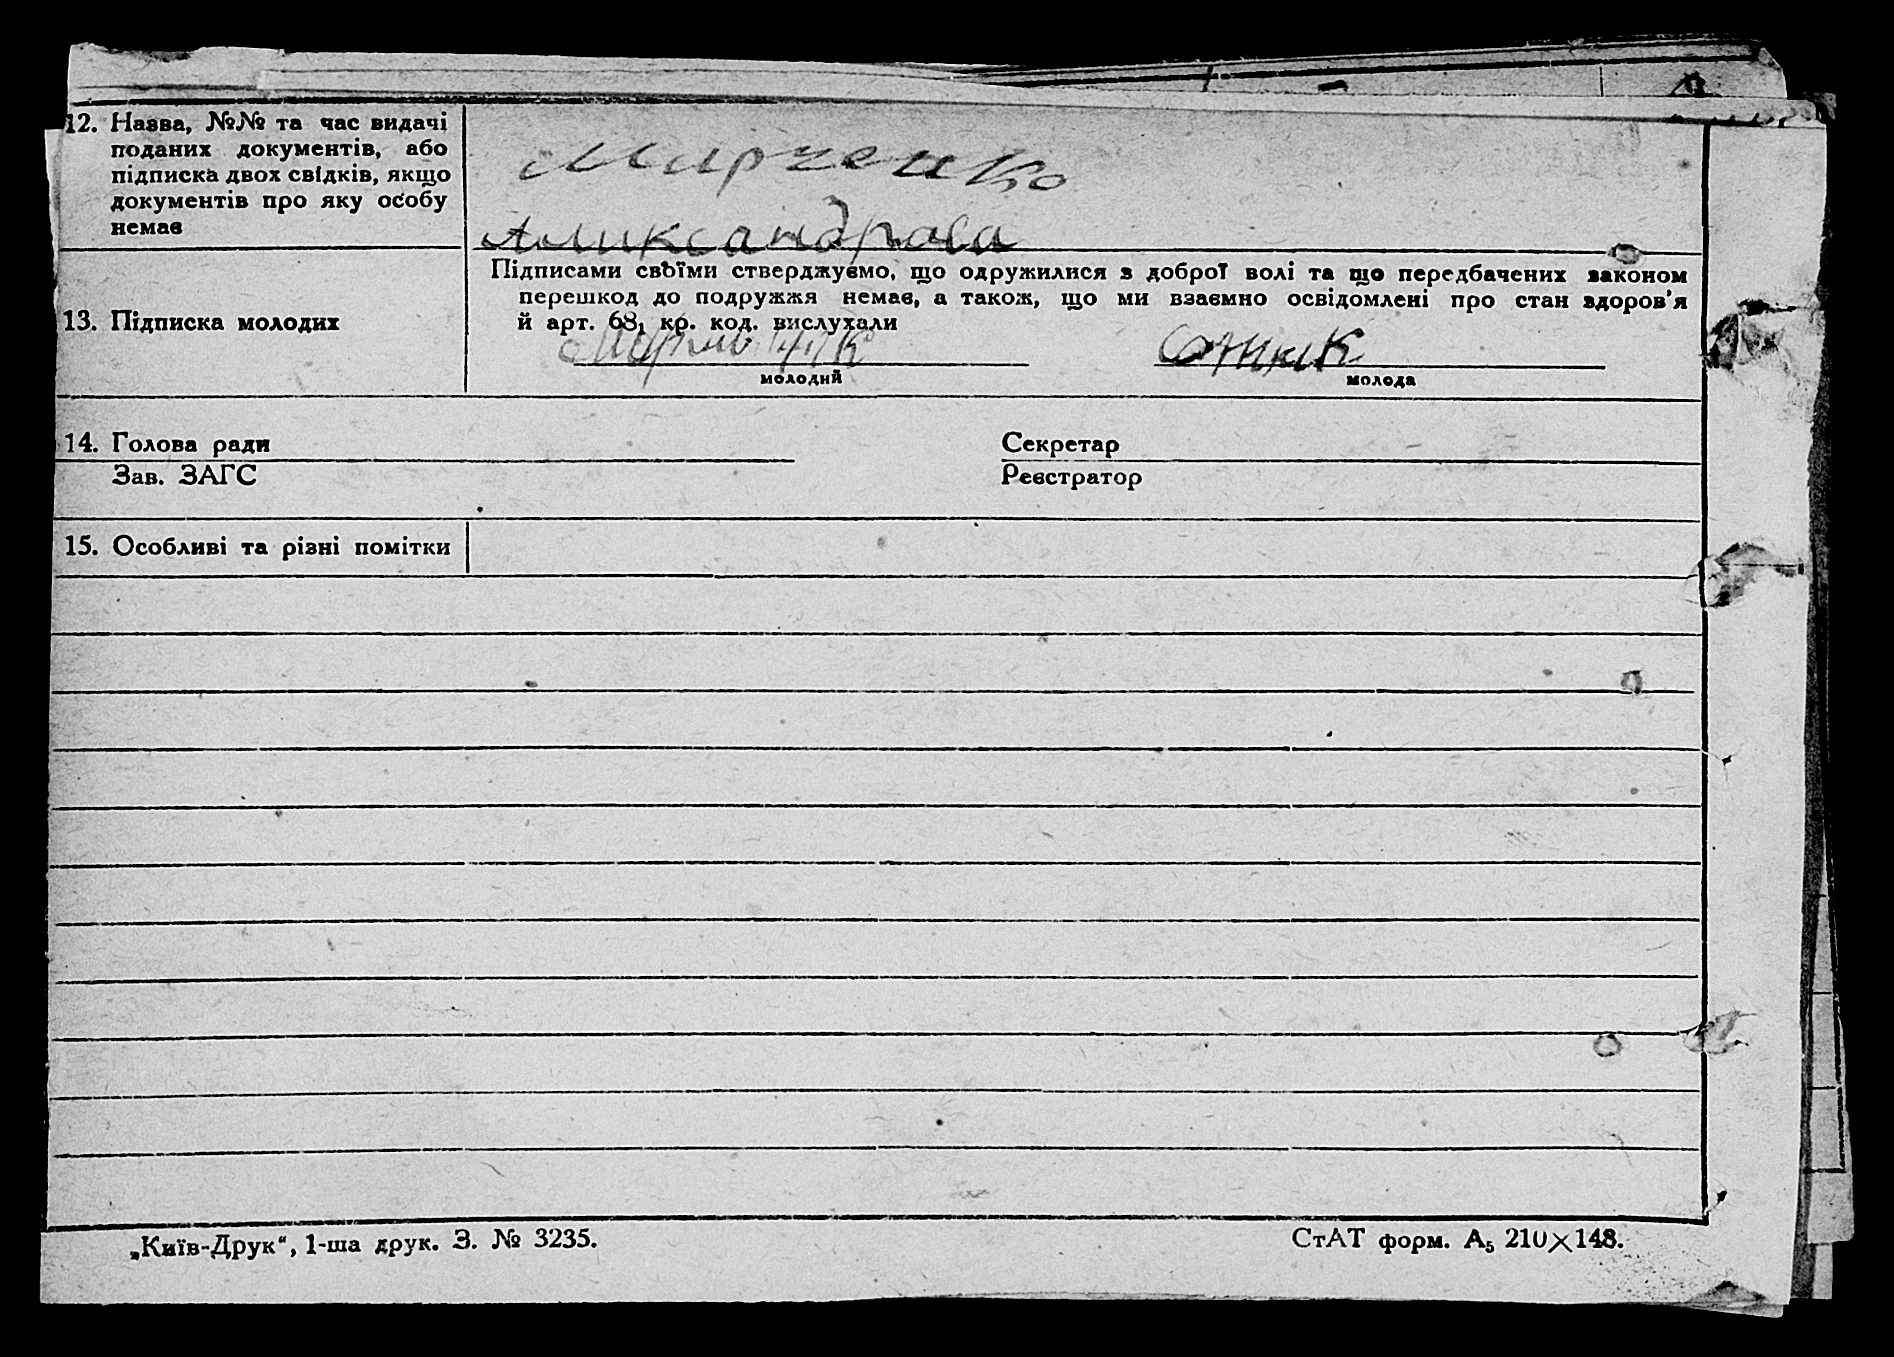 12. Назва, №№ та час видачі
поданих документів, або
підписка двох свідків, якщо
документів про яку особу
немає
Марченко
Александрова
13. Підписка молодих
Підписами своїми стверджуємо, що одружилися з доброї волі та що передбачених законом
перешкод до подружжя немає, а також, що ми взаємно освідомлені про стан здоров'я
й арт. 68₁ кр. код. вислухали
молодий
молода
14. Голова ради
Секретар
Зав. ЗАГС
Реєстратор
15. Особливі та різні помітки
„Київ-Друк“, 1-ша друк. З. № 3235.
СтАТ форм. А₅ 210×148.